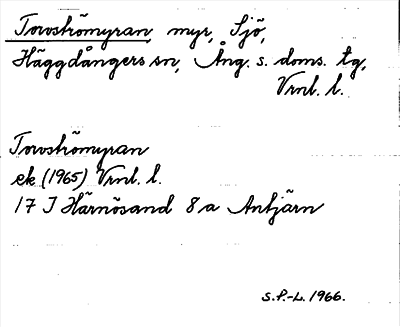 Torströmyran, myr, Sjö,
Häggdångers sn, Ång. s. doms. tg,
Vrnl. l.
Torströmyran
ek (1965) Vrnl. l.
17 J Härnösand 8 a Antjärn
S.P.-L. 1966.